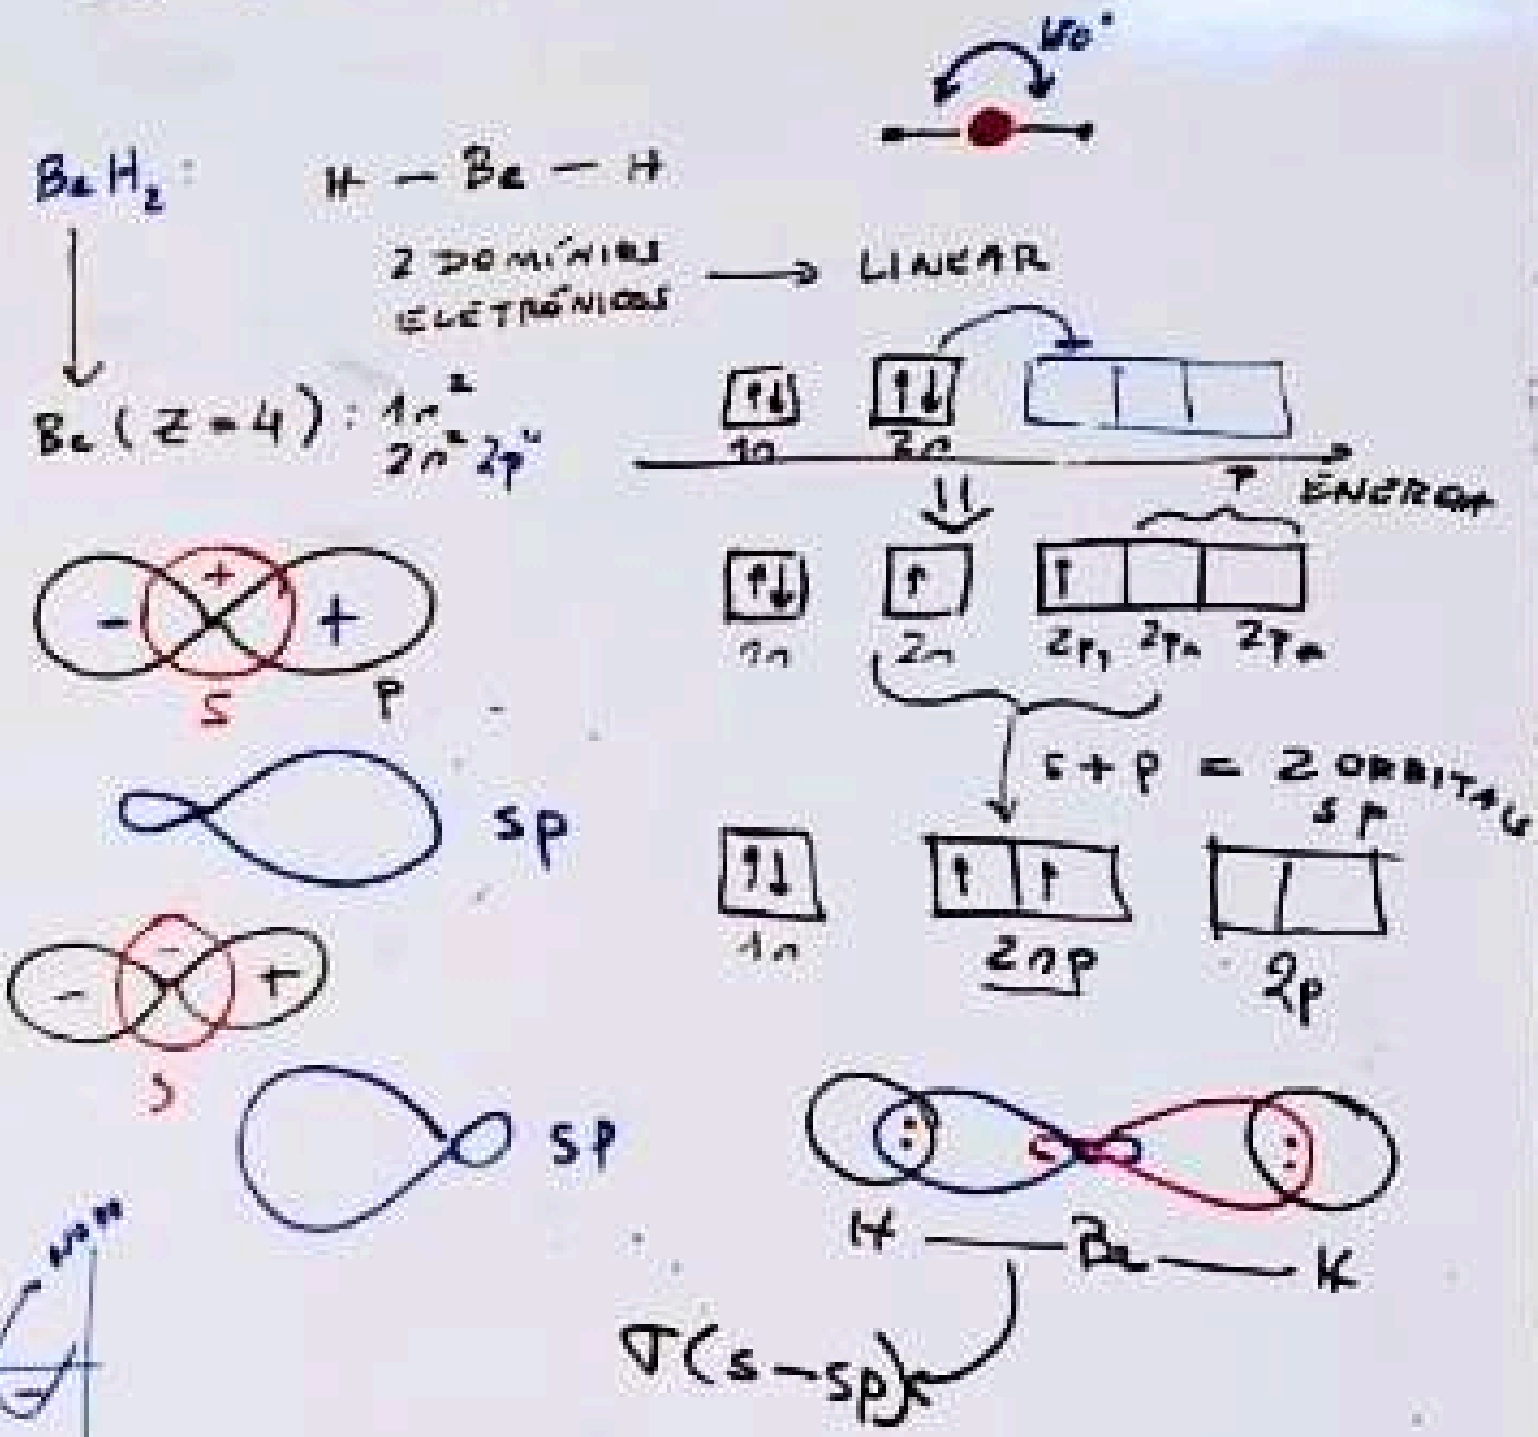 180°
BeH₂: H – Be – H
2 DOMÍNIOS ELETRÔNICOS → LINEAR
Be (Z=4): 1s²
2s² 2p⁰
1s 2s
ENERGIA
- + +
S P
1s 2s 2p 2p 2p
s + p = 2 ORBITAIS
sp
sp
1s 2sp 2p
- - +
S
sp
H — Be — H
σ(s–sp)
-